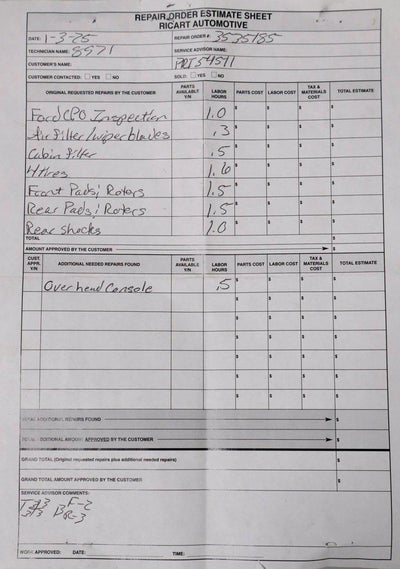 REPAIR ORDER ESTIMATE SHEET
RICART AUTOMOTIVE
DATE: 1-3-25 REPAIR ORDER #: 3535185
TECHNICIAN NAME: 8971 SERVICE ADVISOR NAME:
CUSTOMER'S NAME: PRT54511
CUSTOMER CONTACTED: YES NO SOLD: YES NO
ORIGINAL REQUESTED REPAIRS BY THE CUSTOMER PARTS AVAILABLE Y/N LABOR HOURS PARTS COST LABOR COST TAX & MATERIALS COST TOTAL ESTIMATE
Ford CPO Inspection 1.0 $ $ $ $
Air filter/wiper blades .3 $ $ $ $
Cabin filter .5 $ $ $ $
4 tires 1.6 $ $ $ $
Front Pads; Rotors 1.5 $ $ $ $
Rear Pads; Rotors 1.5 $ $ $ $
Rear Shocks 1.0 $ $ $ $
TOTAL $
AMOUNT APPROVED BY THE CUSTOMER $
CUST. APPR. Y/N ADDITIONAL NEEDED REPAIRS FOUND PARTS AVAILABLE Y/N LABOR HOURS PARTS COST LABOR COST TAX & MATERIALS COST TOTAL ESTIMATE
Overhead Console .5 $ $ $ $
$ $ $ $
$ $ $ $
$ $ $ $
$ $ $ $
$ $ $ $
$ $ $ $
TOTAL ADDITIONAL REPAIRS FOUND $
TOTAL ADDITIONAL AMOUNT APPROVED BY THE CUSTOMER $
GRAND TOTAL (Original requested repairs plus additional needed repairs) $
GRAND TOTAL AMOUNT APPROVED BY THE CUSTOMER $
SERVICE ADVISOR COMMENTS:
F-2
3/3 B R-3
WORK APPROVED: DATE: TIME: